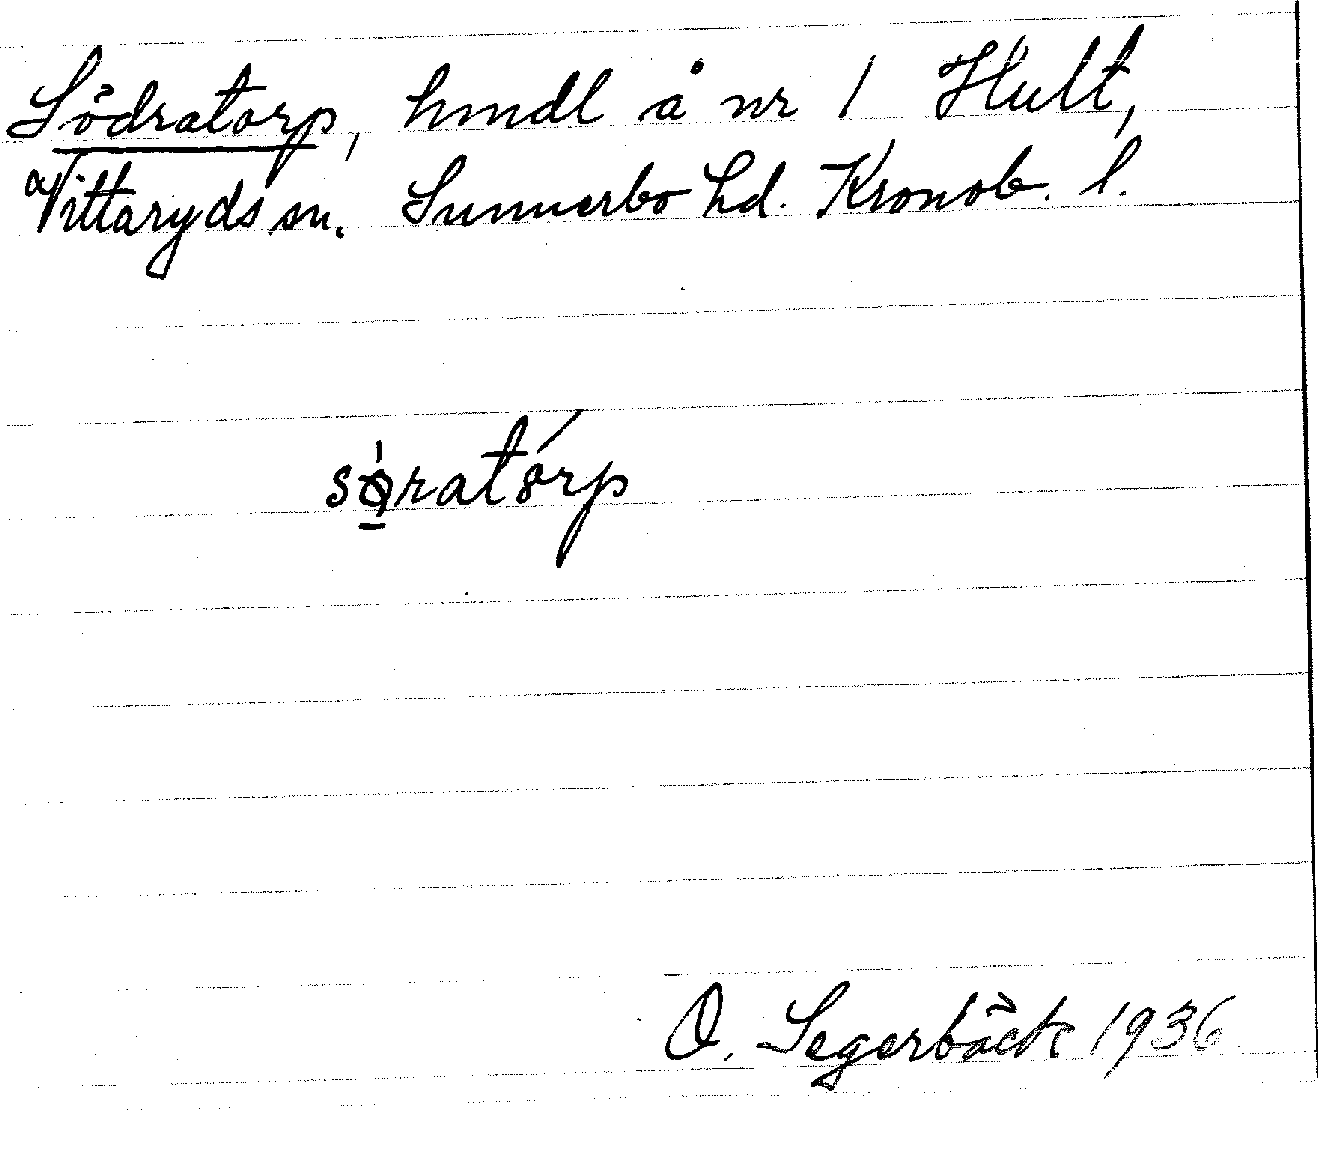 Södratorp, hmdl å nr 1 Hult,
Vittaryds sn. Sunnerbo hd. Kronob. l.
sø̱̍ratórp
O. Segerbäck 1936